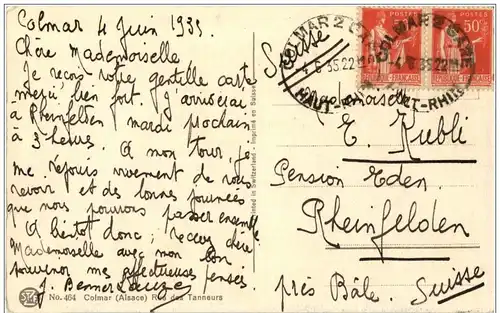 Colmar 4 Juin 1935.
Chère Mademoiselle
Je reçois votre gentille carte
merci bien fort. J'arriverai
à Rheinfelden mardi prochain
à 3 heures. A mon tour je
me réjouis vivement de vous
revoir et des bonnes journées
que nous pouvons passer ensemble
A bientôt donc; recevez chère
Mademoiselle avec mon bon
souvenir mes affectueuses pensées.
J.
No. 464 Colmar (Alsace) Rue des Tanneurs
Printed in Switzerland - Imprimé en Suisse
COLMAR 2 GARE
4 6 35 22
HAUT-RHIN
POSTES
50c
REPUBLIQUE FRANÇAISE
Suisse
Mademoiselle
E. Kubli
Pension Eden.
Rheinfelden
près Bâle. Suisse